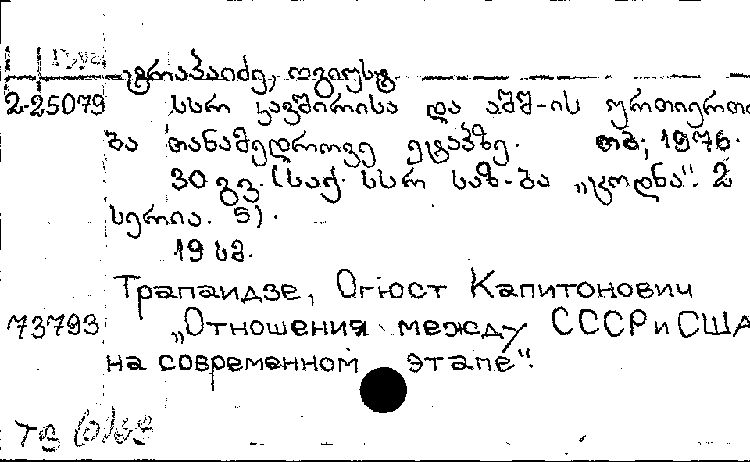 ტრაპაიძე, ოგიუსტ
2-25079 სსრ კავშირისა და აშშ-ის ურთიერთო
ბა თანამედროვე ეტაპზე. თბ; 1976.
30 გვ. (საქ. სსრ საზ-ბა „ცოდნა“. 2
სერია. 5).
19 სმ.
Трапаидзе, Огюст Капитонович
73793 „Отношения между СССР и США
на современном этапе".